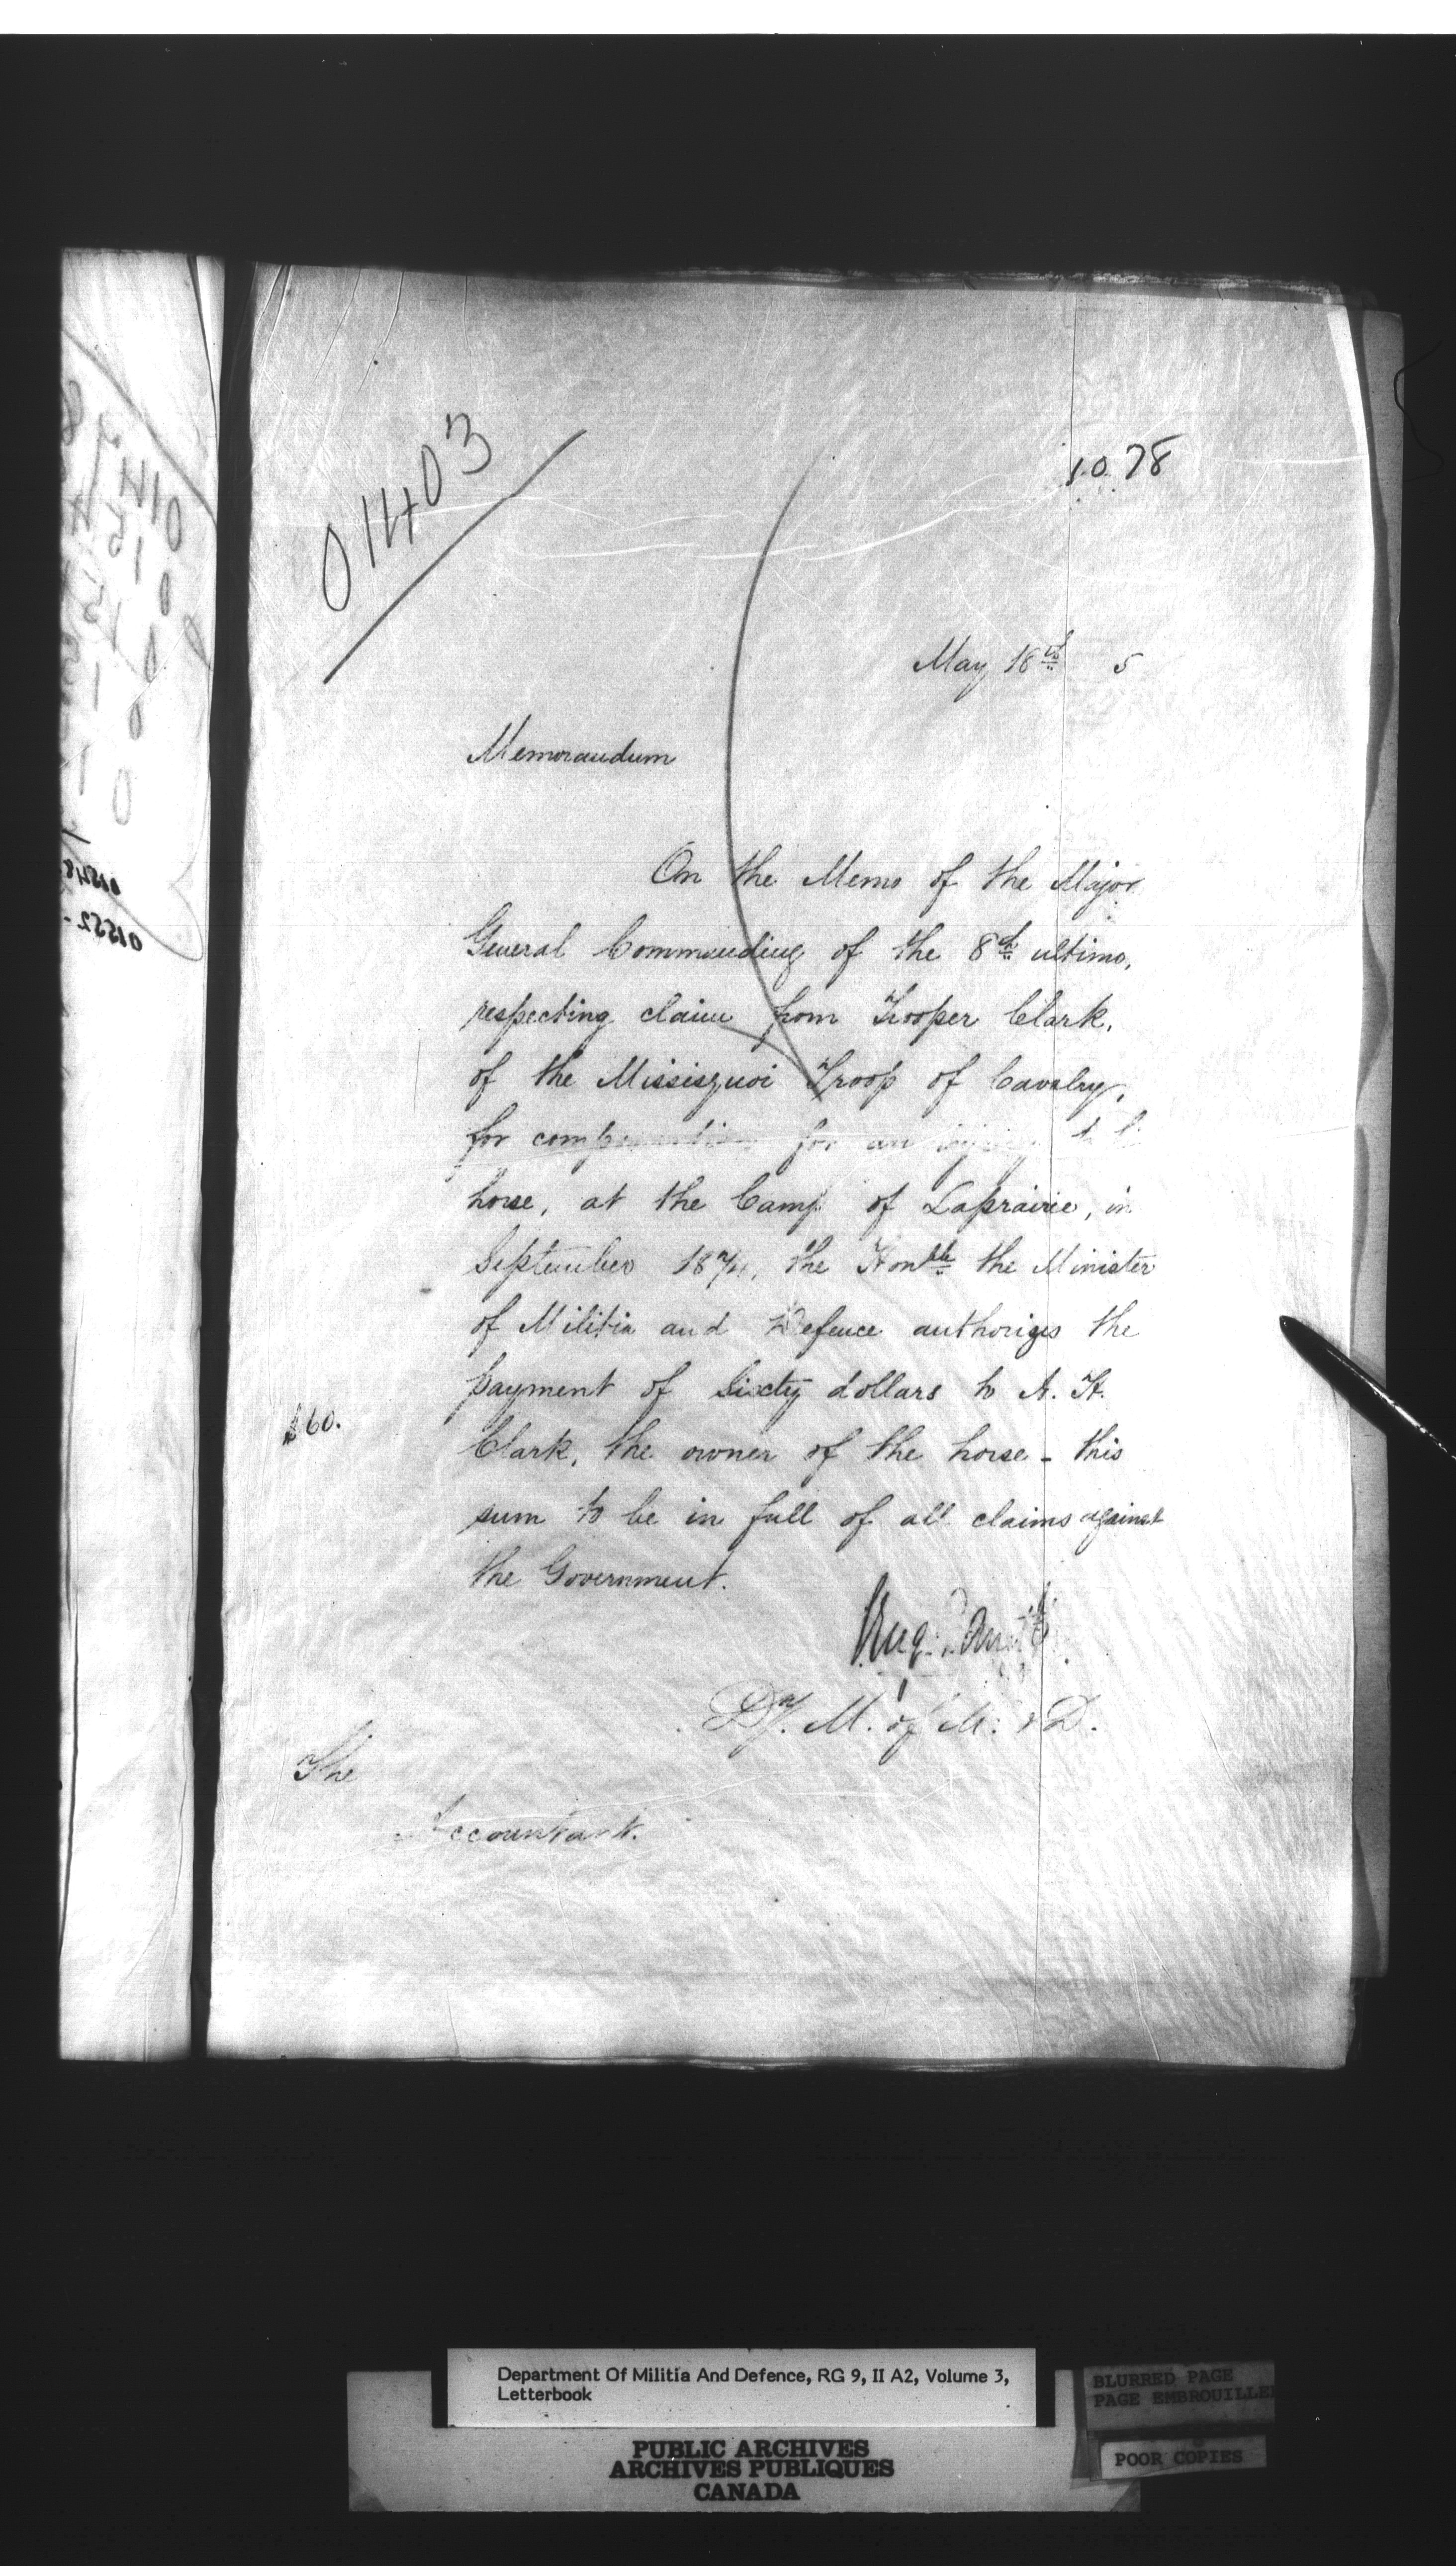 01403
1078
May 18th 5
Memorandum
On the Memo of the Major
General Commanding of the 8th ultimo,
respecting claim from Trooper Clark,
of the Missisquoi Troop of Cavalry,
for compensation for an injury to
horse, at the Camp of Laprairie, in
September 1874, the Honble the Minister
of Militia and Defence authorizes the
payment of Sixty dollars to A. H.
$60.
Clark, the owner of the horse - this
sum to be in full of all claims against
the Government.
Dy. M. of M. & D.
The
Accountant.
01548
01552-
Department Of Militia And Defence, RG 9, II A2, Volume 3,
Letterbook
PUBLIC ARCHIVES
ARCHIVES PUBLIQUES
CANADA
BLURRED PAGE
PAGE EMBROUILLEE
POOR COPIES